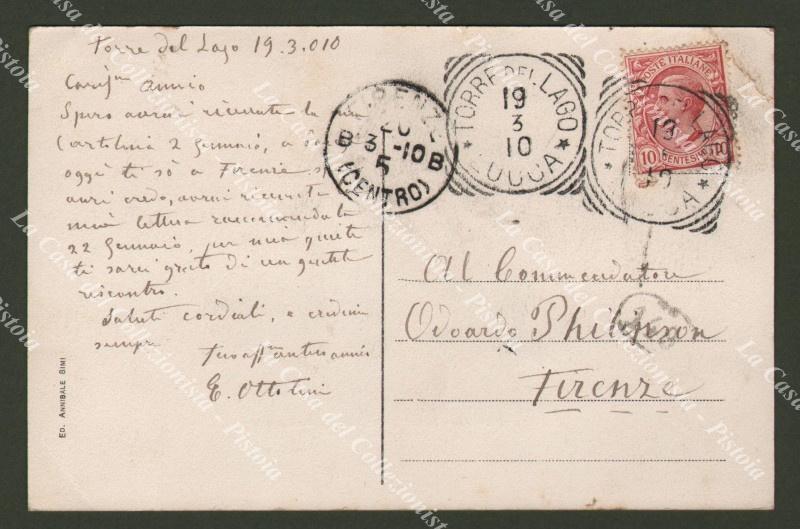 Torre del Lago 19.3.010
Cariss.mo amico
Spero avrai ricevuta la mia
Cartolina 2 Gennaio, e
oggi ti so a Firenze
avrai credo, avrai ricevuta
mia lettera raccomandata
22 Gennaio, per mia quiete
ti sarei grato di un gentile
riscontro.
Saluti cordiali, e credimi
sempre
tuo aff.mo antico amico
E. Ottolini
ED. ANNIBALE SIMI
FIRENZE
20
B 3-10 B
5
(CENTRO)
TORRE DEL LAGO
19
3
10
LUCCA
POSTE ITALIANE
10 CENTESIMI 10
TORRE DEL LAGO
19
10
LUCCA
Al Commendatore
Odoardo Philipson
Firenze
La Casa del Collezionista - Pistoia